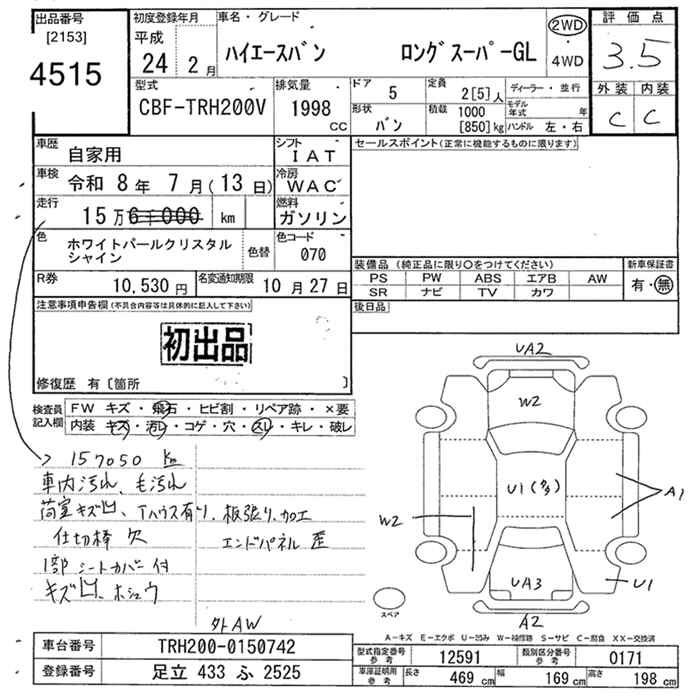 出品番号
[2153]
4515
初度登録年月
平成
24年 2月
車名・グレード
ハイエースバン ロングスーパーGL
2WD
・
4WD
評価点
3.5
外装 内装
C C
型式
CBF-TRH200V
排気量
1998
CC
ドア
5
形状
バン
定員
2[5]人
積載 1000
[850]kg
ディーラー・並行
モデル年式 年
ハンドル 左・右
車歴
自家用
シフト
IAT
車検
令和 8年 7月(13日)
冷房
WAC
走行
15万6千000 km
燃料
ガソリン
色
ホワイトパールクリスタル
シャイン
色替
色コード
070
R券
10,530円
名変通知期限
10月27日
セールスポイント(正常に機能するものに限ります)
装備品(純正品に限り○をつけてください)
PS PW ABS エアB AW
SR ナビ TV カワ
新車保証書
有・無
後日品
注意事項申告欄(不具合内容等は具体的に記入して下さい)
初出品
修復歴 有〔箇所 〕
検査員
記入欄
FW キズ・飛石・ヒビ割・リペア跡・×要
内装 キズ・汚レ・コゲ・穴・スレ・キレ・破レ
157050 km
車内汚れ、毛汚れ
荷室キズ凹、Tハウス有り、板張り、加工
仕切棒 欠
エンドパネル 歪
1部 シートカバー付
キズ凹、ホシュウ
外AW
UA2
W2
U1(多)
A1
W2
UA3
U1
A2
スペア
A−キズ E−エクボ U−凹み W−補修跡 S−サビ C−腐食 XX−交換済
車台番号
TRH200-0150742
登録番号
足立 433 ふ 2525
型式指定番号
参考
12591
類別区分番号
参考
0171
車庫証明用
参考
長さ 469cm 幅 169cm 高さ 198cm